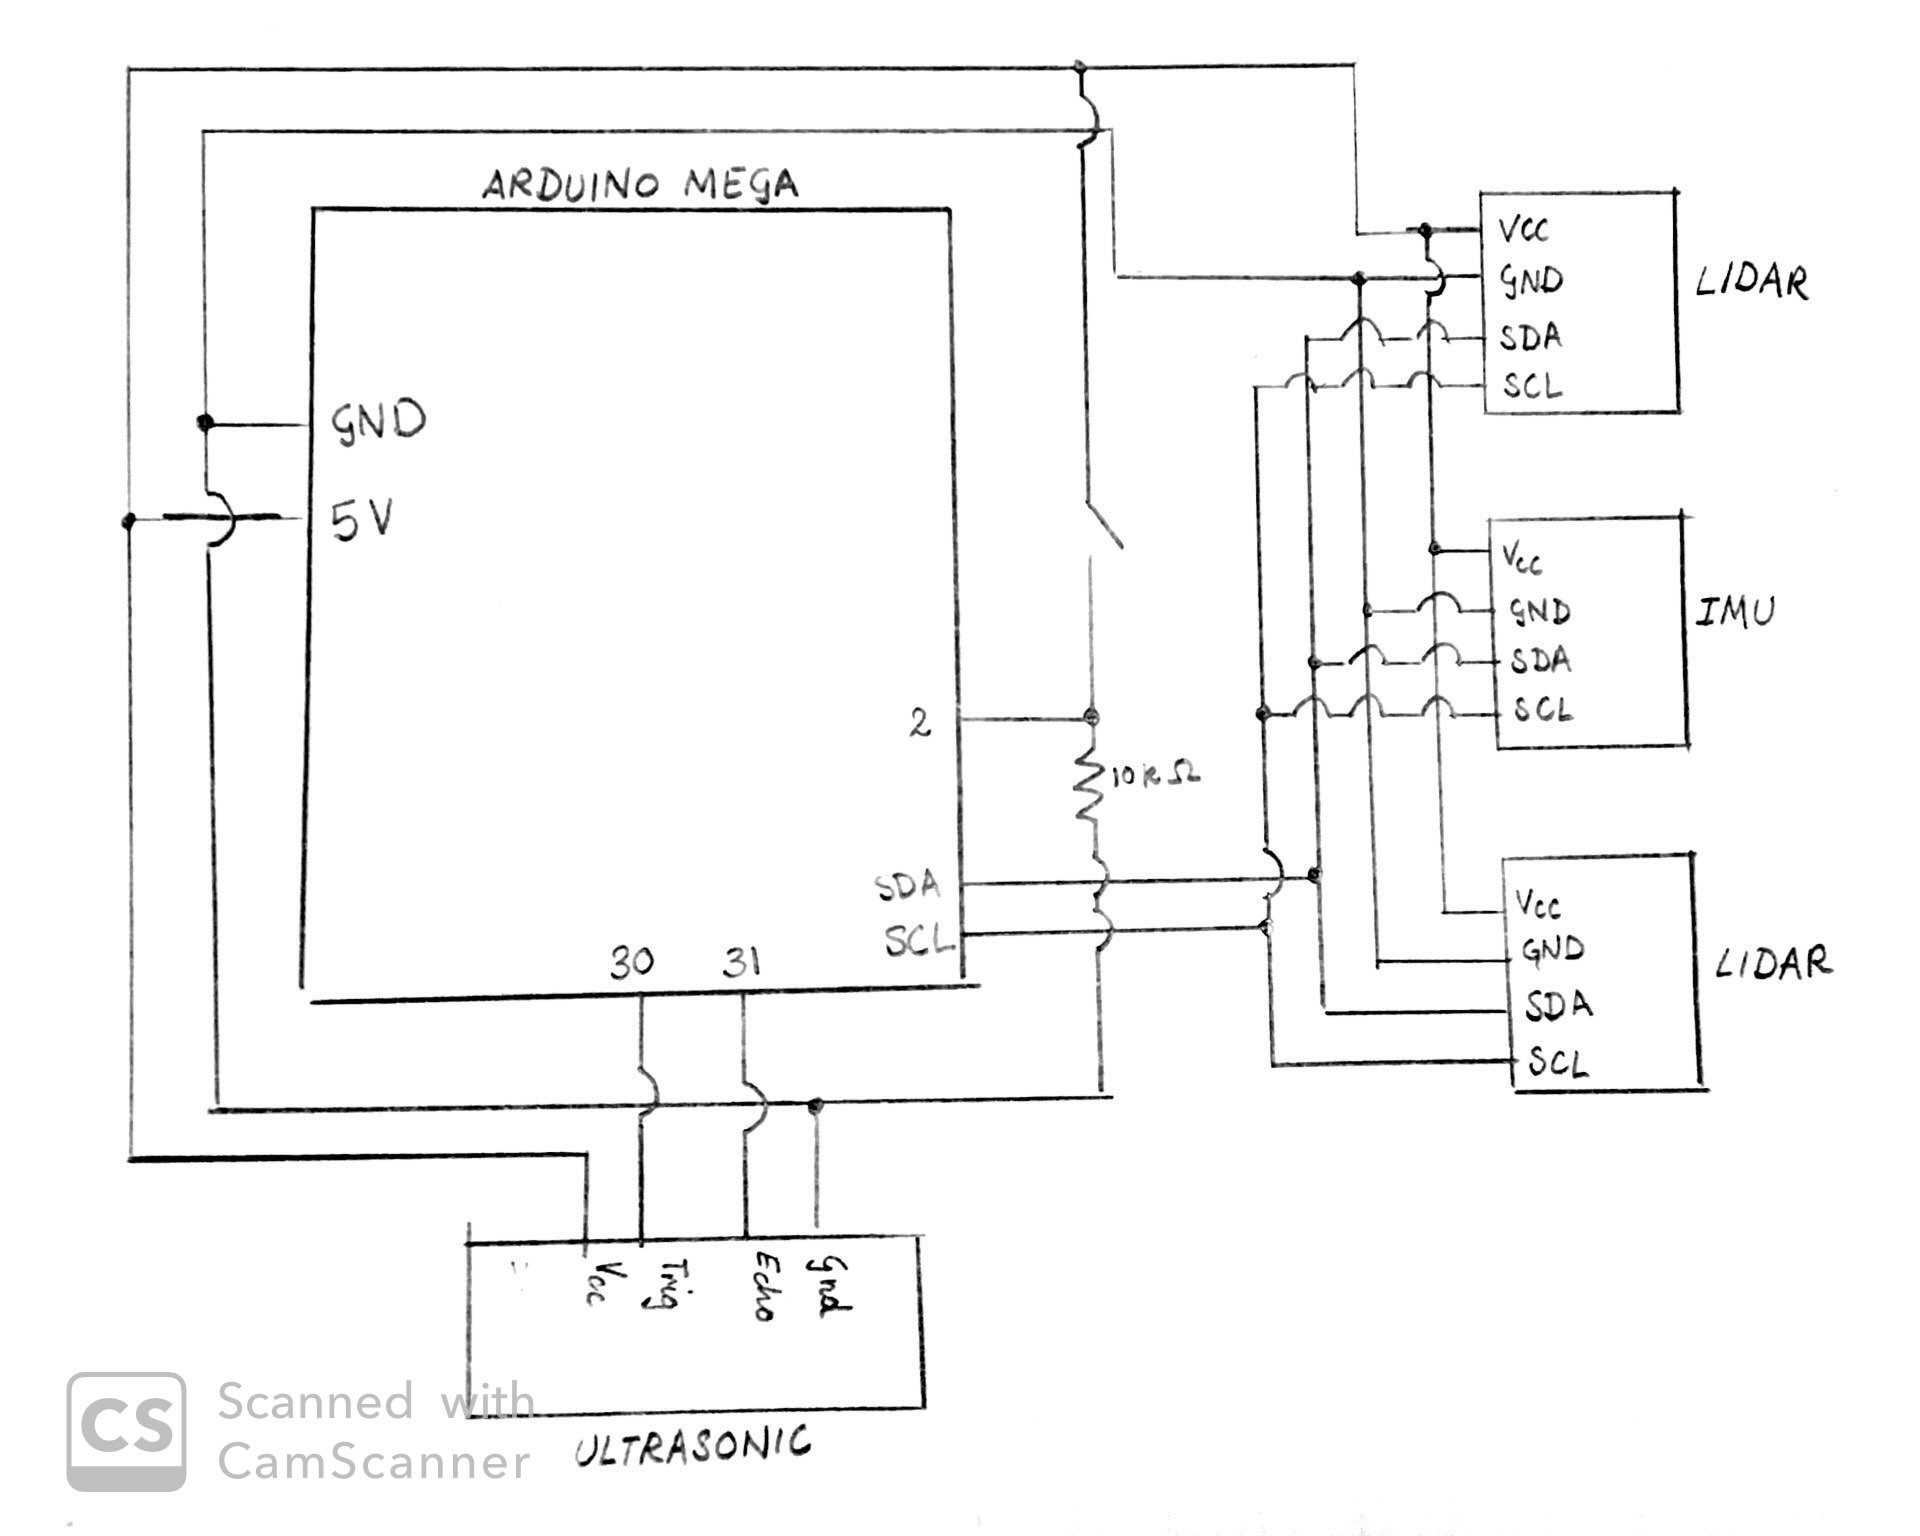 ARDUINO MEGA
GND
5V
2
SDA
SCL
30 31
10kΩ
VCC
GND
SDA
SCL
LIDAR
Vcc
GND
SDA
SCL
IMU
Vcc
GND
SDA
SCL
LIDAR
Vcc
Trig
Echo
Gnd
ULTRASONIC
CS
Scanned with
CamScanner